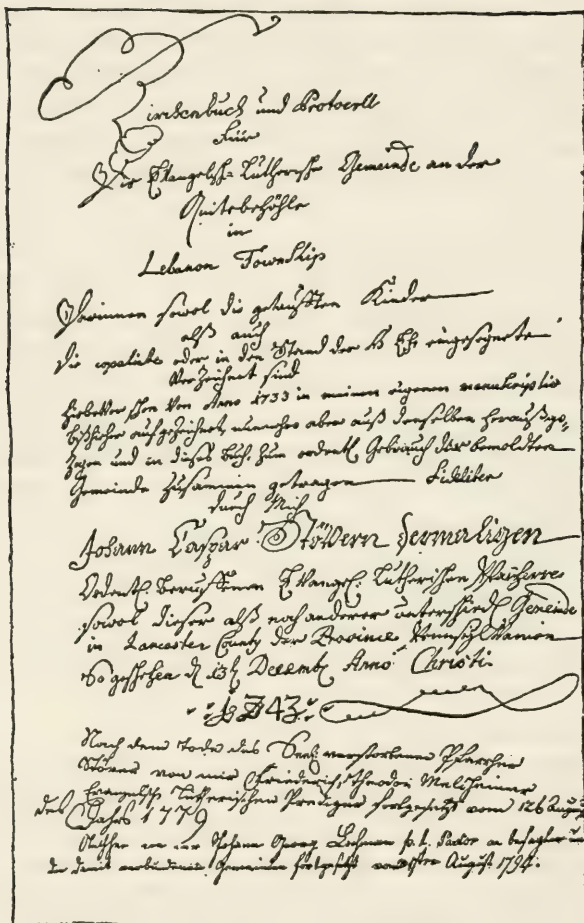 Kirchenbuch und Protocoll
Für
Die Evangelisch-Lutherische Gemeinde an der
Quitebehöhle
in
Lebanon Township
Darinnen sowol die getaufften Kinder
alß auch
die copulirte oder in den Stand der H. Ehe eingesegnete
Verzeichnet sind
von Anno 1733 in meinen eigenen manuscriptis
bißhieher aufgezeichnet, nunmehro aber auß denselben heraußge-
zogen und in dieses Buch zum ordentl. Gebrauch
Gemeinde zusammen getragen fideliter
durch Mich
Johann Caspar Stövern dermaligen
Ordentl. beruffenen Evangel. Lutherischen Pfarherrn
sowol dieser alß noch anderer Gemeinde
in Lancaster County der Province Pennsylvanien
So geschehen d. 13t Decemb. Anno Christi
1743
Nach dem Tode des Seel. verstorbenen Pfarrher
Stöver von mir Friederich Theodor Melsheimer
Evangelisch Lutherischen Prediger fortgesetzt vom 12t August
des Jahrs 1779
Johann Georg Lochman p.t. Pastor an besagter
Gemeinen fortgesetzt August 1794.